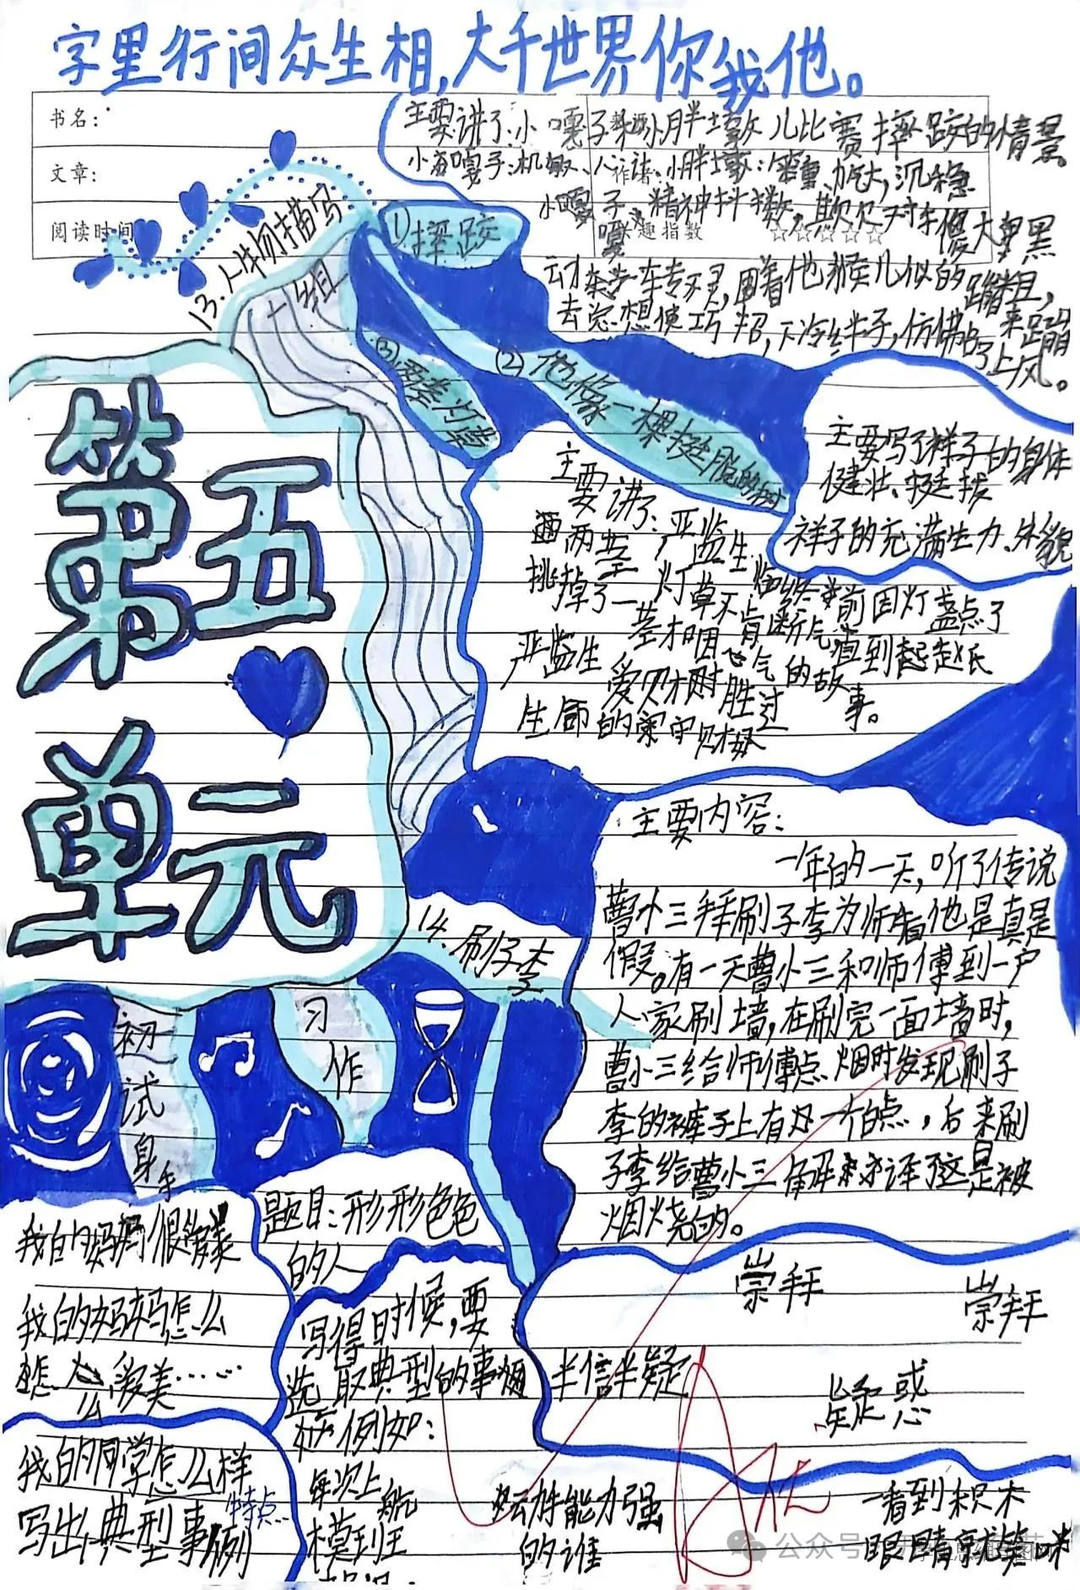 字里行间众生相,大千世界你我他。
书名:
文章:
阅读时间
趣指数
☆☆☆☆☆
13.人物描写
一组
①摔跤
主要讲了小嘎子和小胖墩儿比赛摔跤的情景。
小嘎子:机敏、小胖墩:笨重,沉稳
小嘎子,精神抖擞,欺负对手傻大黑
围着他猴儿似的蹦来蹦
去总想使巧招,下冷绊子,仿佛占了上风。
②他像一棵挺脱的树
主要写了祥子的身体
健壮、挺拔
祥子的充满生力、外貌
③两茎灯草
主要讲了:严监生临终前因灯盏点了
两茎灯草不肯断气直到赵氏
挑掉了一茎才咽气的故事。
严监生爱财胜过
生命的守财奴
第五
单元
14.刷子李
主要内容:
一年的一天,听了传说
曹小三拜刷子李为师看他是真是
假。有一天曹小三和师傅到一户
人家刷墙,在刷完一面墙时,
曹小三给师傅点烟时发现刷子
李的裤子上有一个白点,后来刷
子李给曹小三解译了这是被
烟烧的。
崇拜
崇拜
半信半疑
疑惑
初试身手
习作
我的妈妈很
我的妈妈怎么
怎么爱美……
我的同学怎么样
写出典型事例
特点
题目:形形色色
的人
写得时候,要
选取典型的事
例如:
每次上
模到
动能力强
的谁
一看到积木
眼睛就
公众号